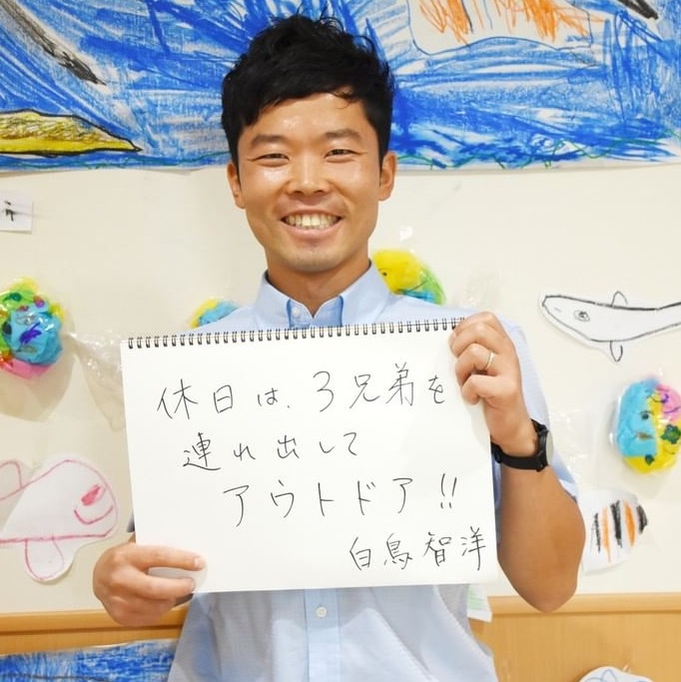 休日は、3兄弟を
連れ出して
アウトドア!!
白鳥智洋